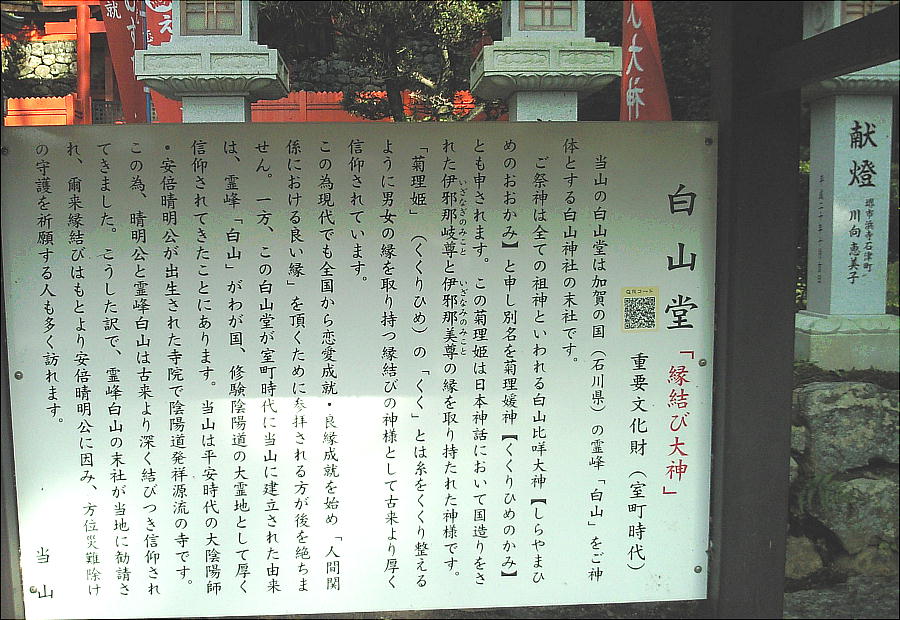 白山堂「縁結び大神」
重要文化財（室町時代）
QRコード
当山の白山堂は加賀の国（石川県）の霊峰「白山」をご神
体とする白山神社の末社です。
ご祭神は全ての祖神といわれる白山比咩大神【しらやまひ
めのおおかみ】と申し別名を菊理媛神【くくりひめのかみ】
とも申されます。この菊理姫は日本神話において国造りをさ
れた伊邪那岐尊と伊邪那美尊の縁を取り持たれた神様です。
いざなぎのみこと
いざなみのみこと
「菊理姫」（くくりひめ）の「くく」とは糸をくくり整える
ように男女の縁を取り持つ縁結びの神様として古来より厚く
信仰されています。
この為現代でも全国から恋愛成就・良縁成就を始め「人間関
係における良い縁」を頂くために参拝される方が後を絶ちま
せん。一方、この白山堂が室町時代に当山に建立された由来
は、霊峰「白山」がわが国、修験陰陽道の大霊地として厚く
信仰されてきたことにあります。当山は平安時代の大陰陽師
・安倍晴明公が出生された寺院で陰陽道発祥源流の寺です。
この為、晴明公と霊峰白山は古来より深く結びつき信仰され
てきました。こうした訳で、霊峰白山の末社が当地に勧請さ
れ、爾来縁結びはもとより安倍晴明公に因み、方位災難除け
の守護を祈願する人も多く訪れます。
当山
献燈
堺市浜寺石津町
川向恵美子
大神